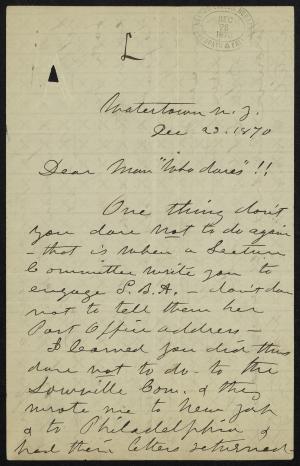 L
DEC
28
Watertown N. Y.
Dec 23. 1870
Dear Man "Who dares" !!
One thing don't
you dare not to do again
- that is when a Lecture
Committee write you to
engage S. B. A. - don't dare
not to tell them her
Post Office address -
I learned you did thus
dare not to do - to the
Lowville Com. & they
wrote me to New York
& to Philadelphia &
had their letters returned -